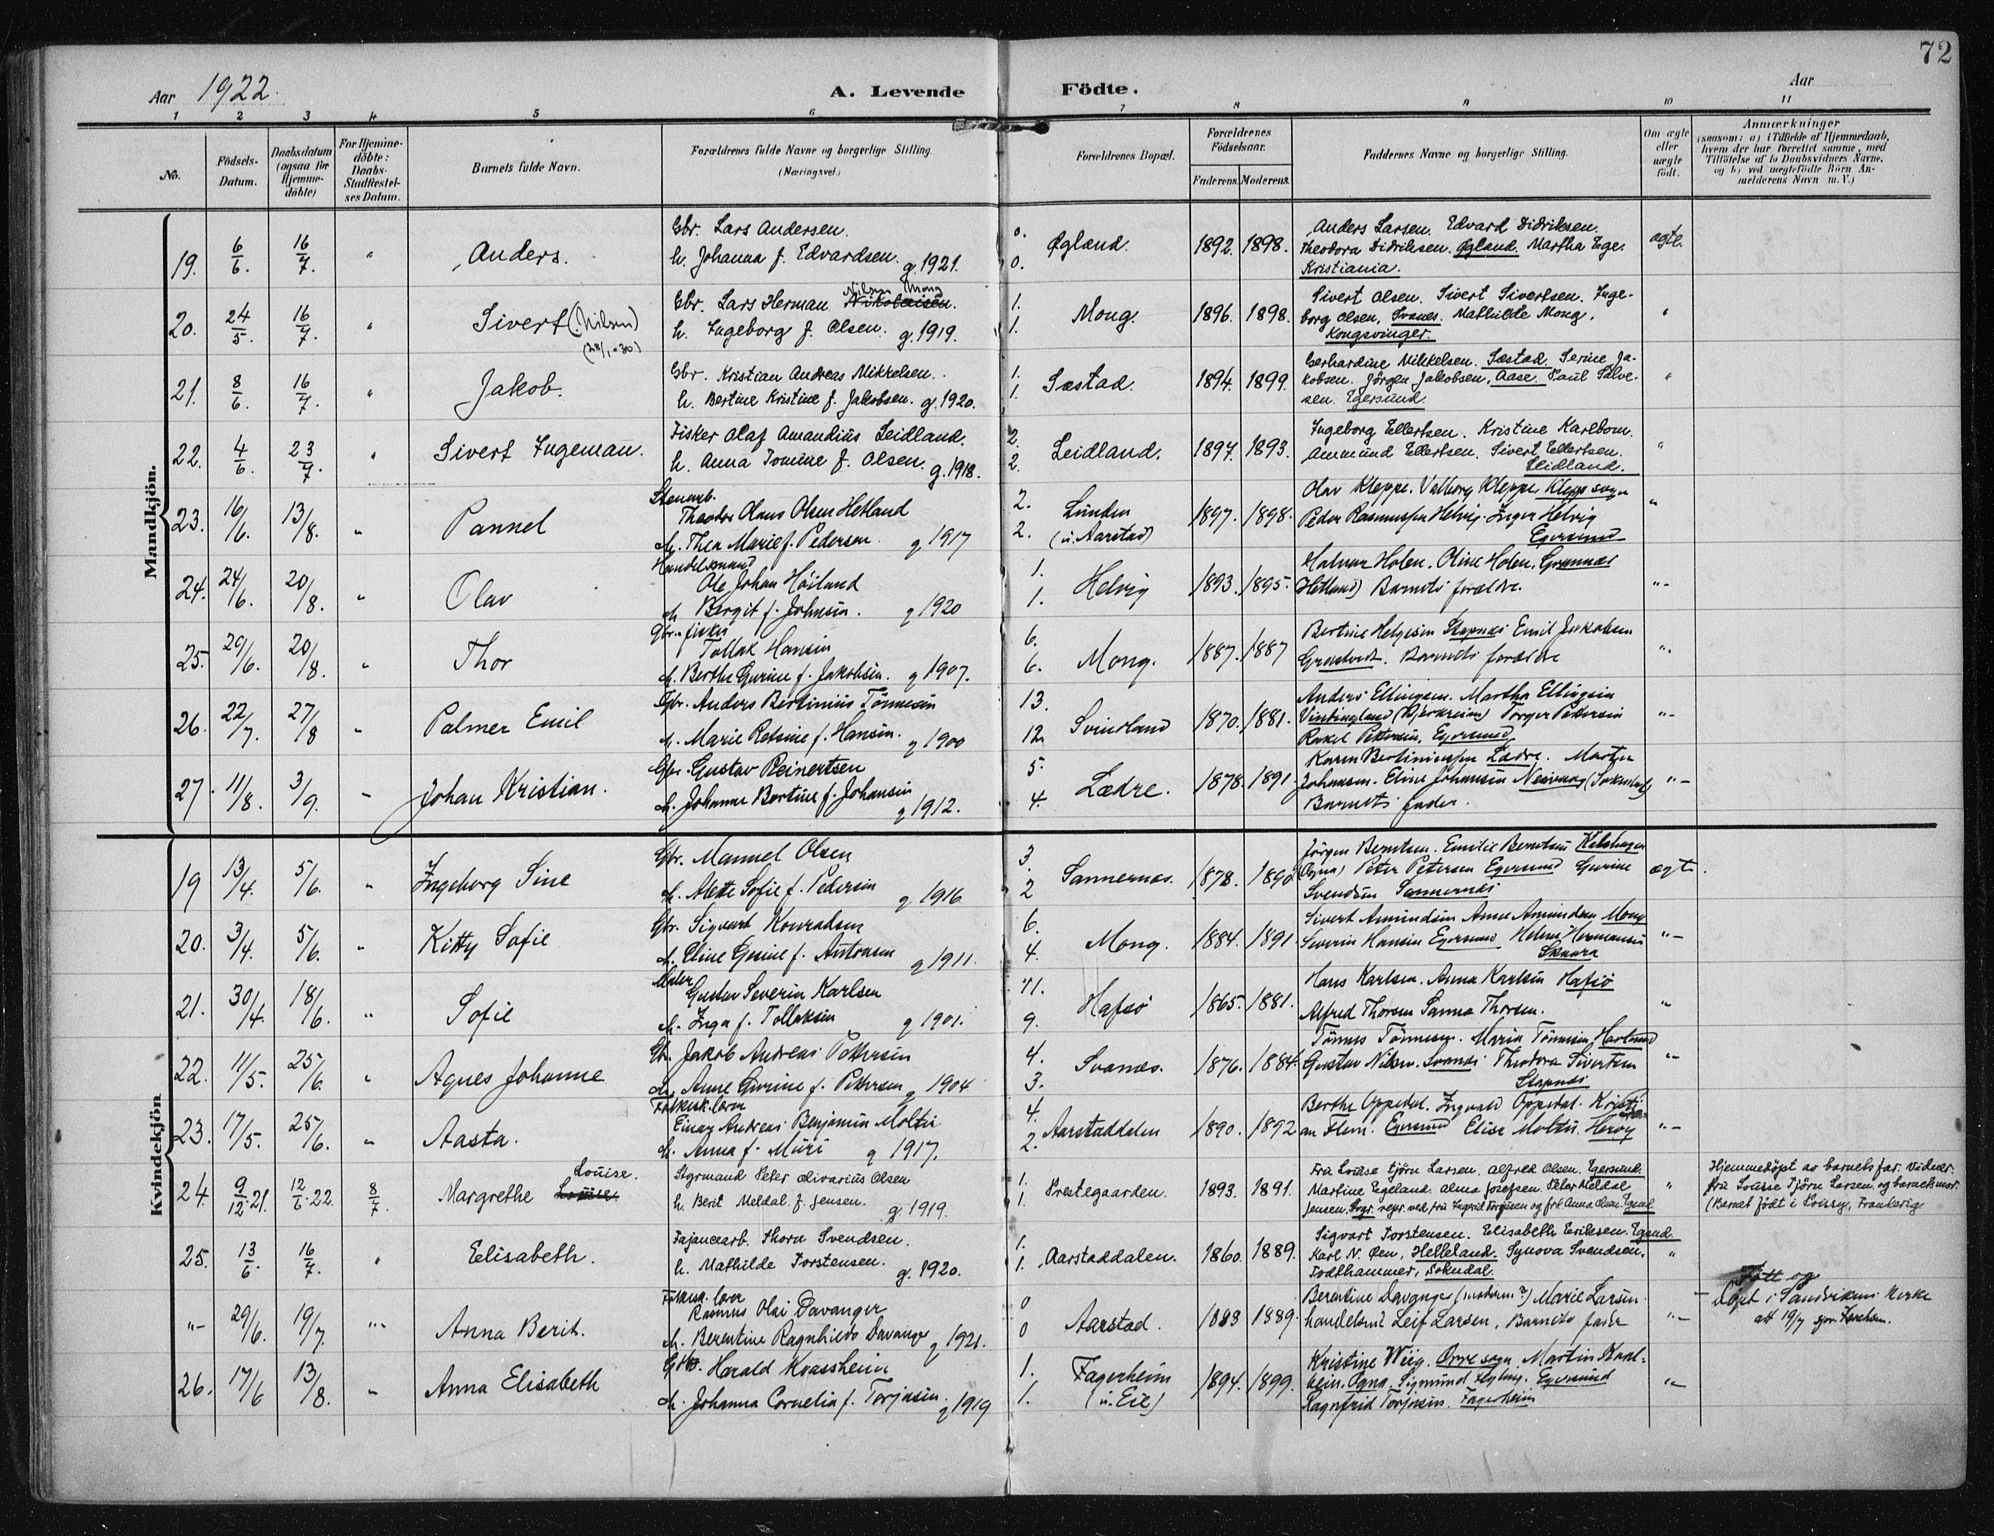 72
Aar 1922. A. Levende Födte. Aar
1 2 3 4 5 6 7 8 9 10 11
No.
Födsels-Datum.
Daabsdatum (ogsaa for Hjemme-döbte)
For Hjemme-döbte: Daabs-Stadfæstel-ses Datum.
Barnets fulde Navn.
Forældrenes fulde Navne og borgerlige Stilling. (Næringsvei.)
Forældrenes Bopæl.
Forældrenes Födselsaar.
Faderens. Moderens.
Faddernes Navne og borgerlige Stilling.
Om ægte eller uægte födt.
Anmærkninger
(saasom: a) i Tilfælde af Hjemmedaab,
hvem der har forrettet samme, med
Tilföielse af to Daabsvidners Navne.
og b) ved uægtefödte Börn An-
melderens Navn m. V.)
Mandkjön.
19. 6/6. 16/7. " Anders. Gbr. Lars Andersen.
h. Johanna f. Edvardsen. g. 1921.
0. 0. Øgland. 1892. 1898. Anders Larsen. Edvard Didriksen.
Theodora Didriksen. Øgland. Martha Ege.
Kristiania. ægte.
20. 24/5. 16/7. " Sivert (Nilsen) (28/1.30) Gbr. Lars Herman Nikolaisen. Nilsen Mong
h. Ingeborg f. Olsen. g. 1919.
1. 1. Mong. 1896. 1898. Sivert Olsen. Sivert Sivertsen. Inge-
borg Olsen, Svanes. Mathilde Mong,
Kongsvinger. "
21. 8/6. 16/7. " Jakob. Gbr. Kristian Andreas Mikkelsen.
h. Bertine Kristine f. Jakobsen. g. 1920.
1. 1. Sæstad. 1894. 1899. Gerhardine Mikkelsen. Sæstad. Serine Ja-
kobsen. Jörgen Jakobsen, Aase. Paul Salve-
sen. Egersund. "
22. 4/6. 23/7. " Sivert Ingeman. Fisker Olaf Amandius Leidland.
h. Anna Tomine f. Olsen. g. 1918.
2. 2. Leidland. 1897. 1893. Ingeborg Ellertsen. Kristine Karlbom.
Ammund Ellertsen. Sivert Ellertsen.
Leidland. "
23. 16/6. 13/8. " Pannel Stenarb.
Theodor Olaus Olsen Hetland
h. Thea Marie f. Pedersen g 1917
2. 2. Lunden
(u. Aarstad) 1897. 1898. Olav Kleppe. Valborg Kleppe Klepp sogn
Peder Rasmussen Helvig. Inger Helvig
Egersund "
24. 24/6. 20/8. " Olav Handelsmand
Ole Johan Höiland
h Bergit f. Johnsen. g 1920
1. 1. Helvig 1893. 1895. Halvar Holen. Oline Holen. Grannes
(Hetland) Barnets forældre. "-
25. 29/6. 20/8. " Thor Gbr. fisker
Tollak Hansen
h. Berthe Gurine f. Jakobsen. g 1907.
6. 6. Mong. 1887. 1887 Bertine Helgesen Stapnes Emil Jakobsen
Grastvedt. Barnets forældre "
26. 22/7. 27/8 " Palmer Emil Gbr. Anders Bertinius Tönnesen
h. Marie Retsine f. Hansen. g 1900
13. 12. Svindland 1870. 1881. Anders Ellingsen. Martha Ellingsen
Vinlingland (Bjerkreim) Torger Pettersen
Rakel Pettersen, Egersund "-
27. 11/8. 3/9. " Johan Kristian. Gbr. Gustav Reinertsen
h. Johanne Bertine f. Johansen
g 1912.
5. 4. Lædre. 1878. 1891. Karen Bertiniussen Lædre. Marten
Johansen. Eline Johansen Nesvaag (Sokndal)
Barnets fader. "-
Kvindekjön
19 13/4. 5/6. " Ingeborg Sine Gbr. Manuel Olsen
h. Alette Sofie f. Pedersen g 1916
3. 2 Sannernes. 1878. 1890 Jörgen Berntsen. Emilie Berntsen
(Ogna) Peter Petersen Egersund Gurine
Svendsen Sannernes ægt.
20. 3/4. 5/6. " Kitty Sofie Gbr. Sigvart Konradsen
h. Eline Gurine f. Antonsen g 1911.
6. 4. Mong. 1884. 1891 Sivert Amundsen Anne Amundsen Mong
Severin Hansen Egersund Helene Hermansen
Skaara "-
21. 30/4. 18/6. " Sofie Maler
Gustav Severin Karlsen
h. Inga f. Tollaksen g 1901.
11. 9. Hafsö 1865. 1881. Hans Karlsen. Anna Karlsen Hafsö
Alfred Thorsen Sanna Thorsen. "
22. 11/5. 25/6. " Agnes Johanne Gbr. Jakob Andreas Pettersen
h. Anne Gurine f. Petersen g 1904
4. 3. Svanes. 1876. 1884. Tönnes Tönnesen. Maria Tönnesen
Gustav Nilsen. Svanes Theodora Sivertsen
Stapnes "-
23. 17/5. 25/6. " Aasta. Folkesk.lærer
Einar Andreas Benjamin Moltu
h. Anna f. Muri g 1917.
4. 2. Aarstaddalen 1890. 1892 Berthe Oppedal. Ingvald Oppedal. Kristi
an Flem. Egersund Elise Moltu. Heröy "-
24. 9/12.21. 12/6.22. 8/7. Margrethe Louise. Styrmand Peter Olivarius Olsen
h. Berit Meldal. f. Jensen. g. 1919.
1. 1. Prestegaarden. 1893. 1891. Fru Louise Tjörn Larsen. Alfred Olsen. Egersund.
Martine Egeland. Alma Josefsen. Peter Meldal
Jensen. repr. ved fru Ingrid Torgusen og frk. Anna Olsen Egsnd "
Hjemmedöpt av barnets far. Vidner:
fru Louise Tjörn Larsen og barnets mor.
(Barnet födt i Frankerig
25. 13/6. 16/7. " Eelisabeth. Fajancearb. Thorn Svendsen.
h. Mathilde Torstensen. g. 1920.
1. 1. Aarstaddalen. 1860. 1889. Sigvart Torstensen. Elisabeth Eriksen. Egsnd.
Karl N. Øen, Helleland. Synova Svendsen.
Todthammer, Sokndal. "
"- 29/6. 19/7. "- Anna Berit. Folkesk. lærer
Rasmus Olai Davanger
h. Berentine Ragnhilds Davanger g 1921.
0 0 Aarstad. 1888 1889. Berentine Davanger (modern ?) Marie Larsen
handelsmd Leif Larsen, Barnets fader "-
Födt og
Döpt i Sandvikens Kirke
att 19/7
26. 17/6 13/8. " Anna Elisabeth Gbr. Harald Kvassheim
h. Johanna Cornelia f. Torjusen. g 1919
1. 1. Fagerheim
(u. Eie) 1894. 1899. Kristine Wiig. Orre sogn. Martin Kval-
bein. Ogna. Sigmund Egersund
Ragnfrid Torjusen. Fagerheim "-